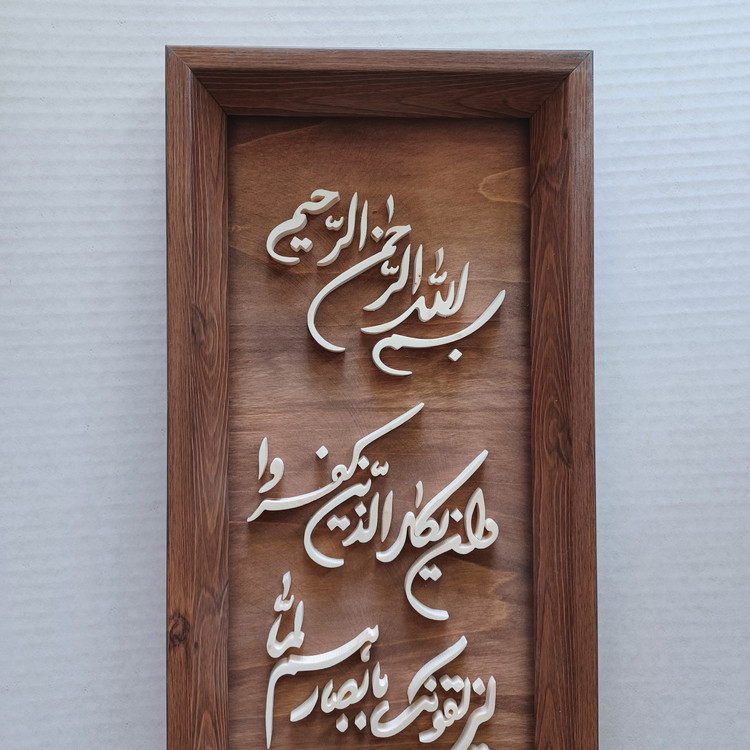 بسم الله الرحمن الرحیم
وان یکاد الذین کفروا
لیزلقونک بابصارهم لمّا